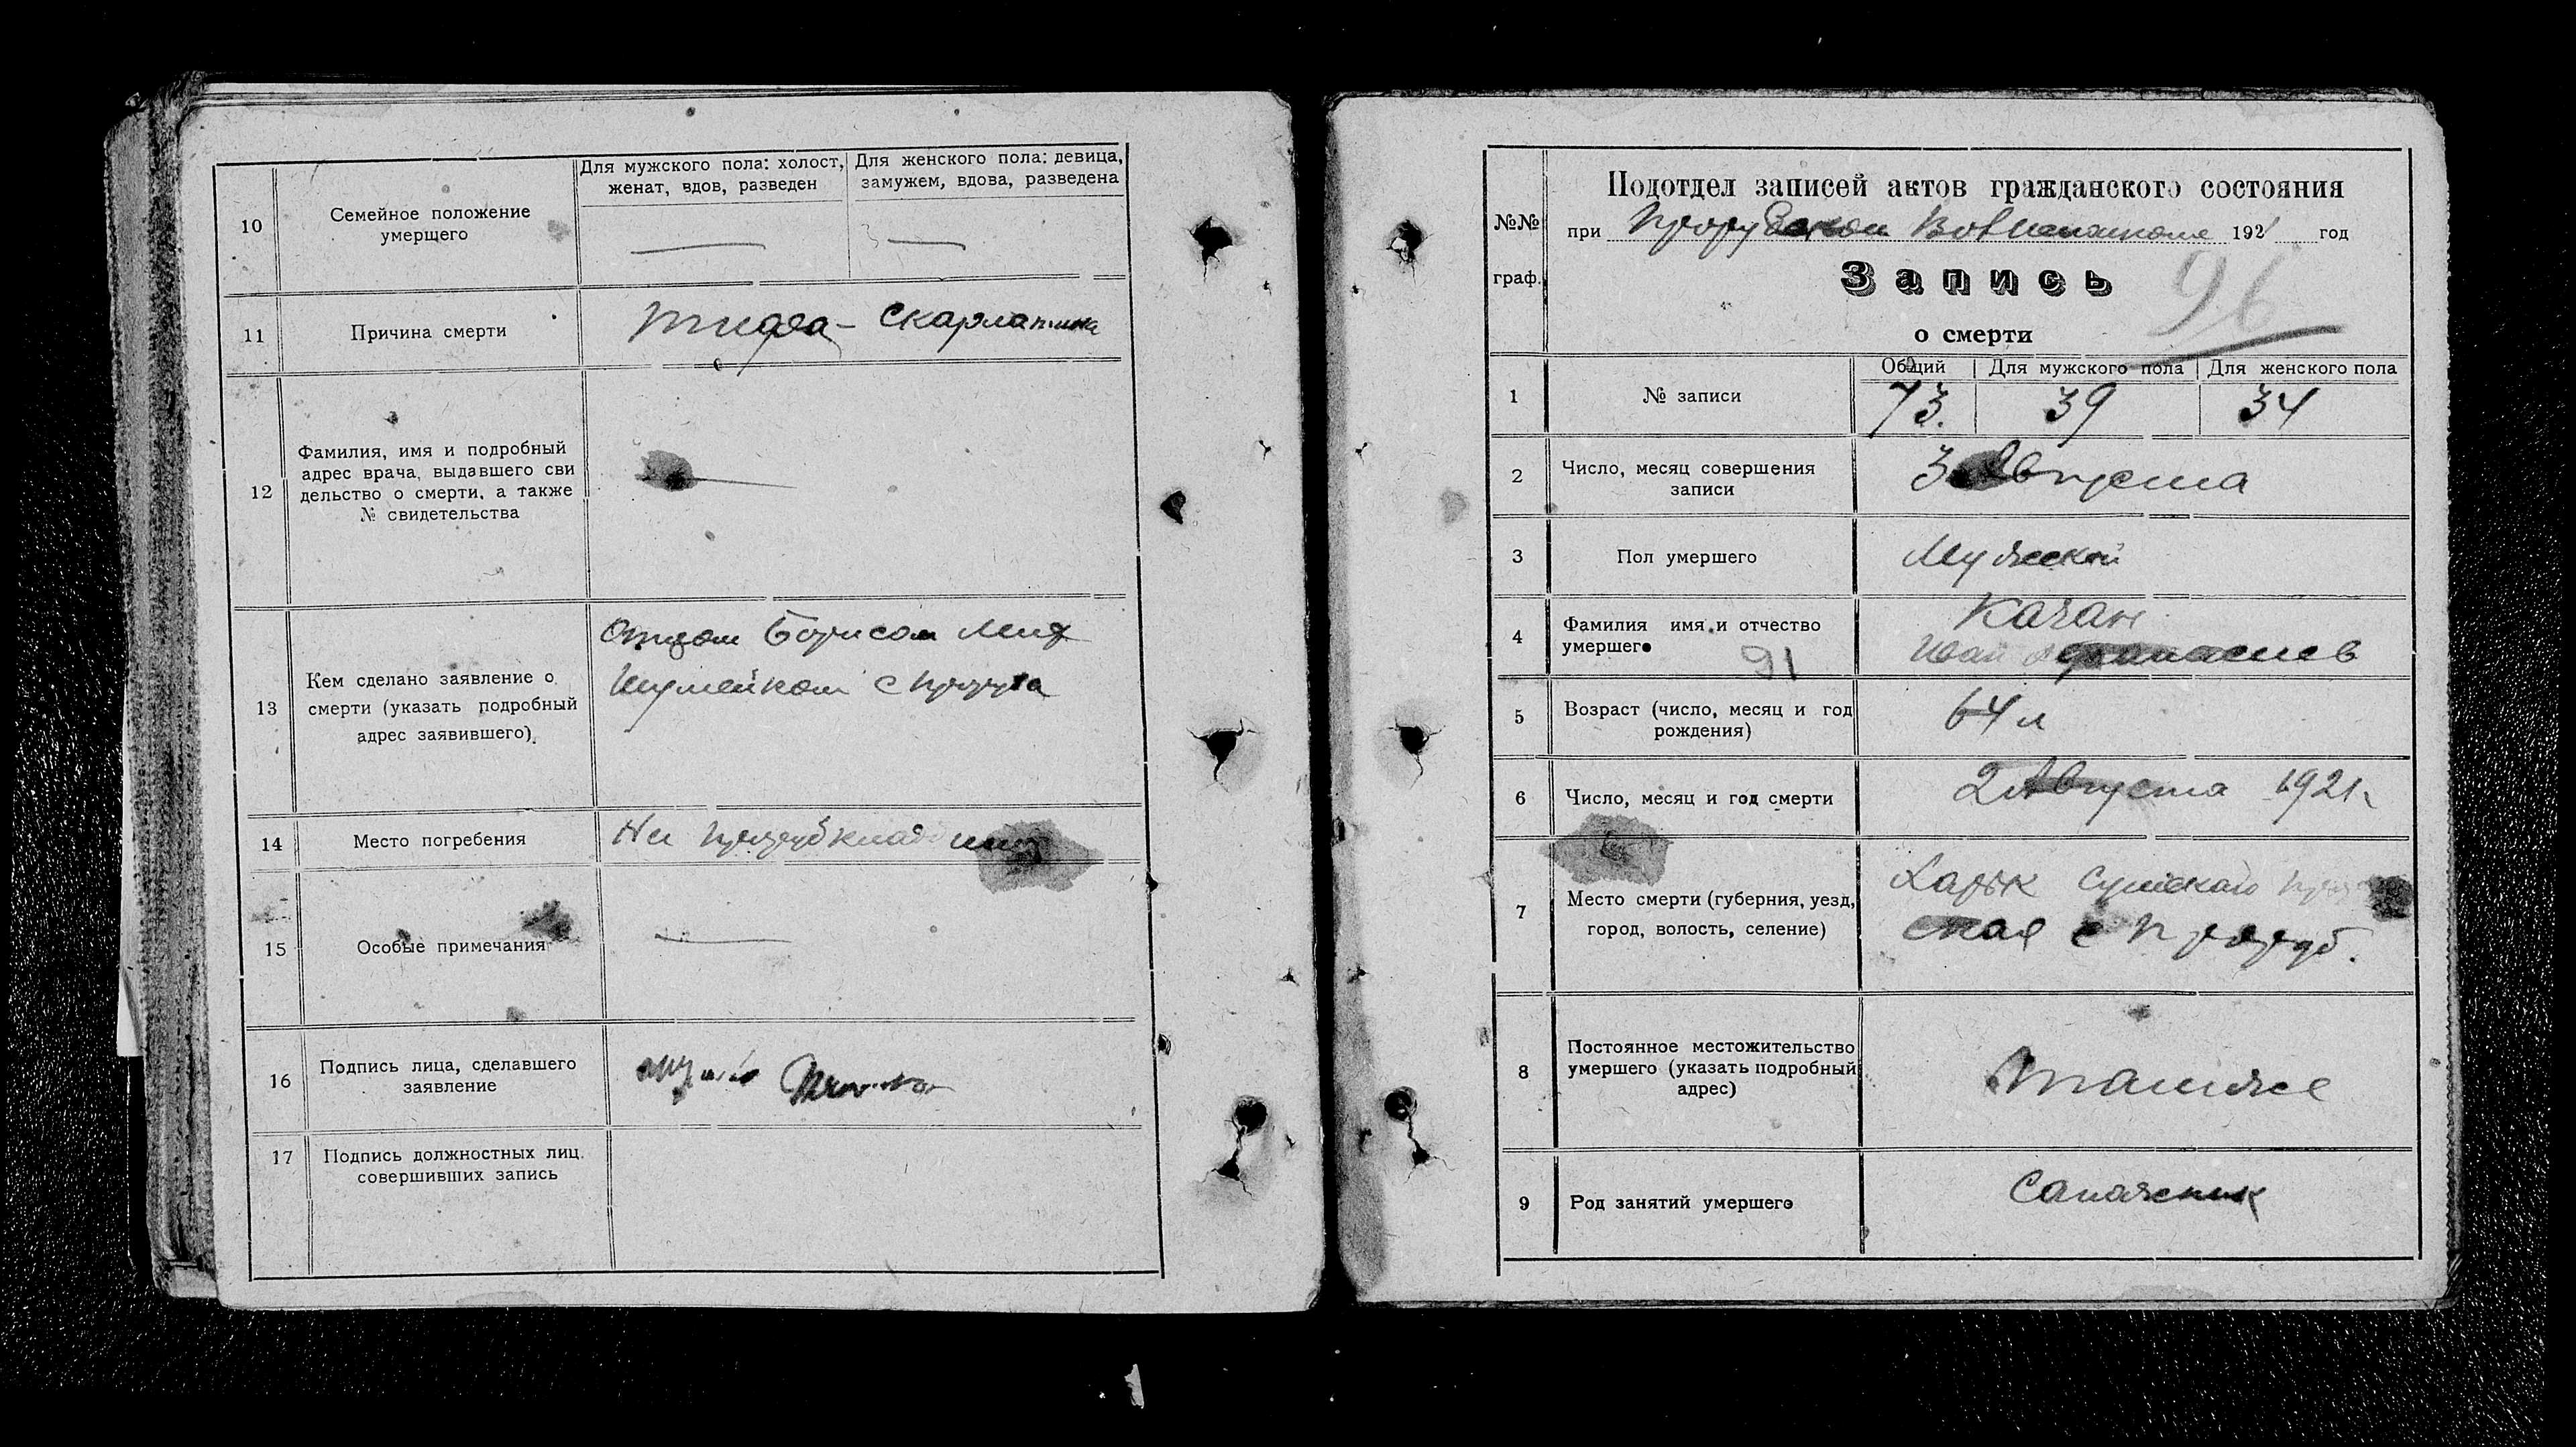 Для мужского пола: холост, женат, вдов, разведен
Для женского пола: девица, замужем, вдова, разведена
10
Семейное положение
умерщего
11
Причина смерти
Скарлатина
12
Фамилия, имя и подробный
адрес врача, выдавшего сви
дельство о смерти, а также
№ свидетельства
13
Кем сделано заявление о
смерти (указать подробный
адрес заявившего)
Отцом Борисом
14
Место погребения
На
15
Особые примечания
16
Подпись лица, сделавшего
заявление
17
Подпись должностных лиц,
совершивших запись
№№
граф.
Подотдел записей актов гражданского состояния
при 1921 год
Запись
96
о смерти
Общий Для мужского пола Для женского пола
1
№ записи
73. 39 34
2
Число, месяц совершения
записи
3 Августа
3
Пол умершего
Мужской
4
Фамилия имя и отчество
умершего
91
Качан
Иван
5
Возраст (число, месяц и год
рождения)
64 л
6
Число, месяц и год смерти
2 Августа 1921 г
7
Место смерти (губерния, уезд,
город, волость, селение)
Харьк Сумского
8
Постоянное местожительство
умершего (указать подробный
адрес)
Тамже
9
Род занятий умершего
Сапожник